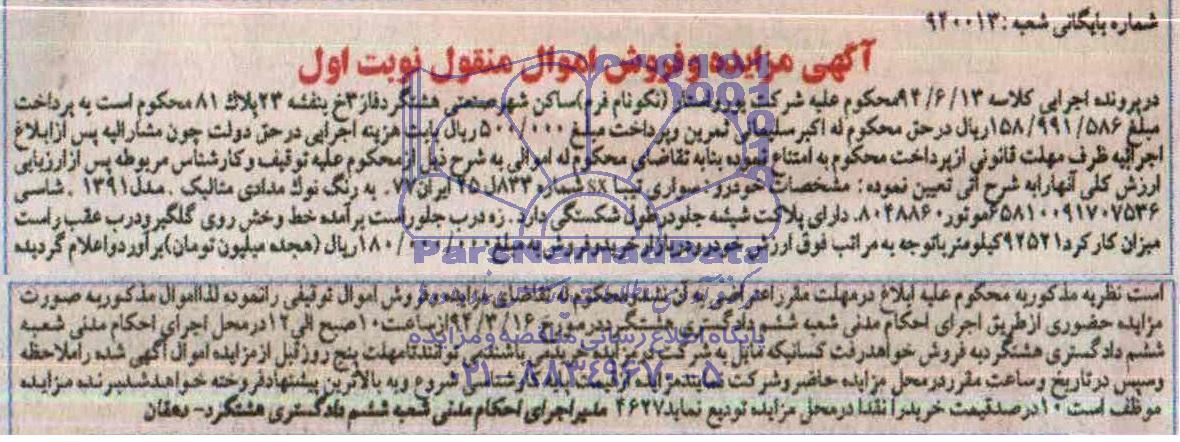 شماره بایگانی شعبه: ۹۴۰۰۱۳
آگهی مزایده و فروش اموال منقول نوبت اول
درپرونده اجرایی کلاسه ۹۴/۶/۱۳محکوم علیه شرکت (نکونام فرم)ساکن شهرصنعتی هشتگردفاز۳خ بنفشه ۲۳پلاک ۸۱ محکوم است به پرداخت
مبلغ ۱۵۸/۹۹۱/۵۸۶ریال درحق محکوم له اکبرسلیمانی ثمرین وپرداخت مبلغ ۵۰۰/۰۰۰ریال بابت هزینه اجرایی درحق دولت چون مشارالیه پس ازابلاغ
اجرائیه ظرف مهلت قانونی ازپرداخت محکوم به امتناع نموده بنابه تقاضای محکوم له اموالی به شرح ذیل ازمحکوم علیه توقیف وکارشناس مربوطه پس ازارزیابی
ارزش کلی آنهارابه شرح آتی تعیین نموده: مشخصات خودرو سواری تیبا sx شماره ۸۳۳ل۴۵ ایران۷۷. به رنگ نوک مدادی متالیک. مدل۱۳۹۱. شاسی
موتور۸۰۴۸۸۶۰. دارای پلاکت شیشه جلودرطول شکستگی دارد. زه درب جلوراست برآمده خط وخش روی گلگیرودرب عقب راست
میزان کارکرد۹۲۵۲۱کیلومترباتوجه به مراتب فوق ارزش خودرودربازارخریدوفروش به مبلغ ۱۸۰/۰۰۰/۰۰۰ریال (هجده میلیون تومان)برآوردواعلام گردیده
است نظریه مذکوربه محکوم علیه ابلاغ درمهلت مقرراعتراضی به آن نشده محکوم له تقاضای مزایده وفروش اموال توقیفی رانموده لذااموال مذکوربه صورت
مزایده حضوری ازطریق اجرای احکام مدنی شعبه ششم دادگستری هشتگرد درمورخ ۹۴/۳/۱۶ازساعت ۱۰صبح الی۱۲درمحل اجرای احکام مدنی شعبه
ششم دادگستری هشتگردبه فروش خواهدرفت کسانیکه مایل به شرکت درمزایده وخرید می باشندمی توانندتامهلت پنج روزقبل ازمزایده اموال آگهی شده راملاحظه
وسپس درتاریخ وساعت مقرردرمحل مزایده حاضروشرکت نمایند مزایده ازقیمت کارشناسی شروع وبه بالاترین پیشنهادفروخته خواهدشدبرنده مزایده
موظف است ۱۰درصدقیمت خریدرا نقدا درمحل مزایده تودیع نماید۴۶۲۷ مدیراجرای احکام مدنی شعبه ششم دادگستری هشتگرد- دهقان
ParsNamadData
پایگاه اطلاع رسانی مناقصه و مزایده
۰۲۱-۸۸۳۴۹۶۷۰-۵